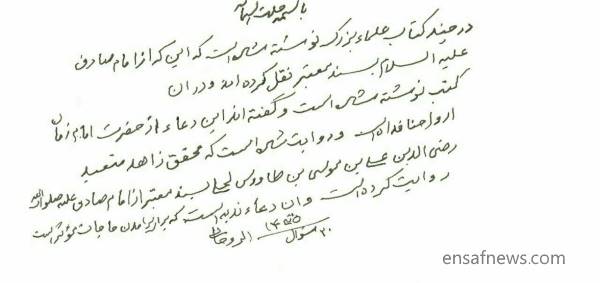 باسمه جلت اسمائه
در چند کتاب علماء بزرگ نوشته شده است که این که از امام صادق
علیه السلام بسند معتبر نقل کرده اند و در ان
کتب نوشته شده است و گفته اند این دعاء از حضرت امام زمان
ارواحنا فداه است و روایت شده است که محقق زاهد متعبد
رضی الدین علی بن موسی بن طاووس بسند معتبر از امام صادق علیه صلوات الله
روایت کرده است وان دعاء ندبه است که برای برآمدن حاجات مؤثر است
۳۰ شوال
ensafnews.com